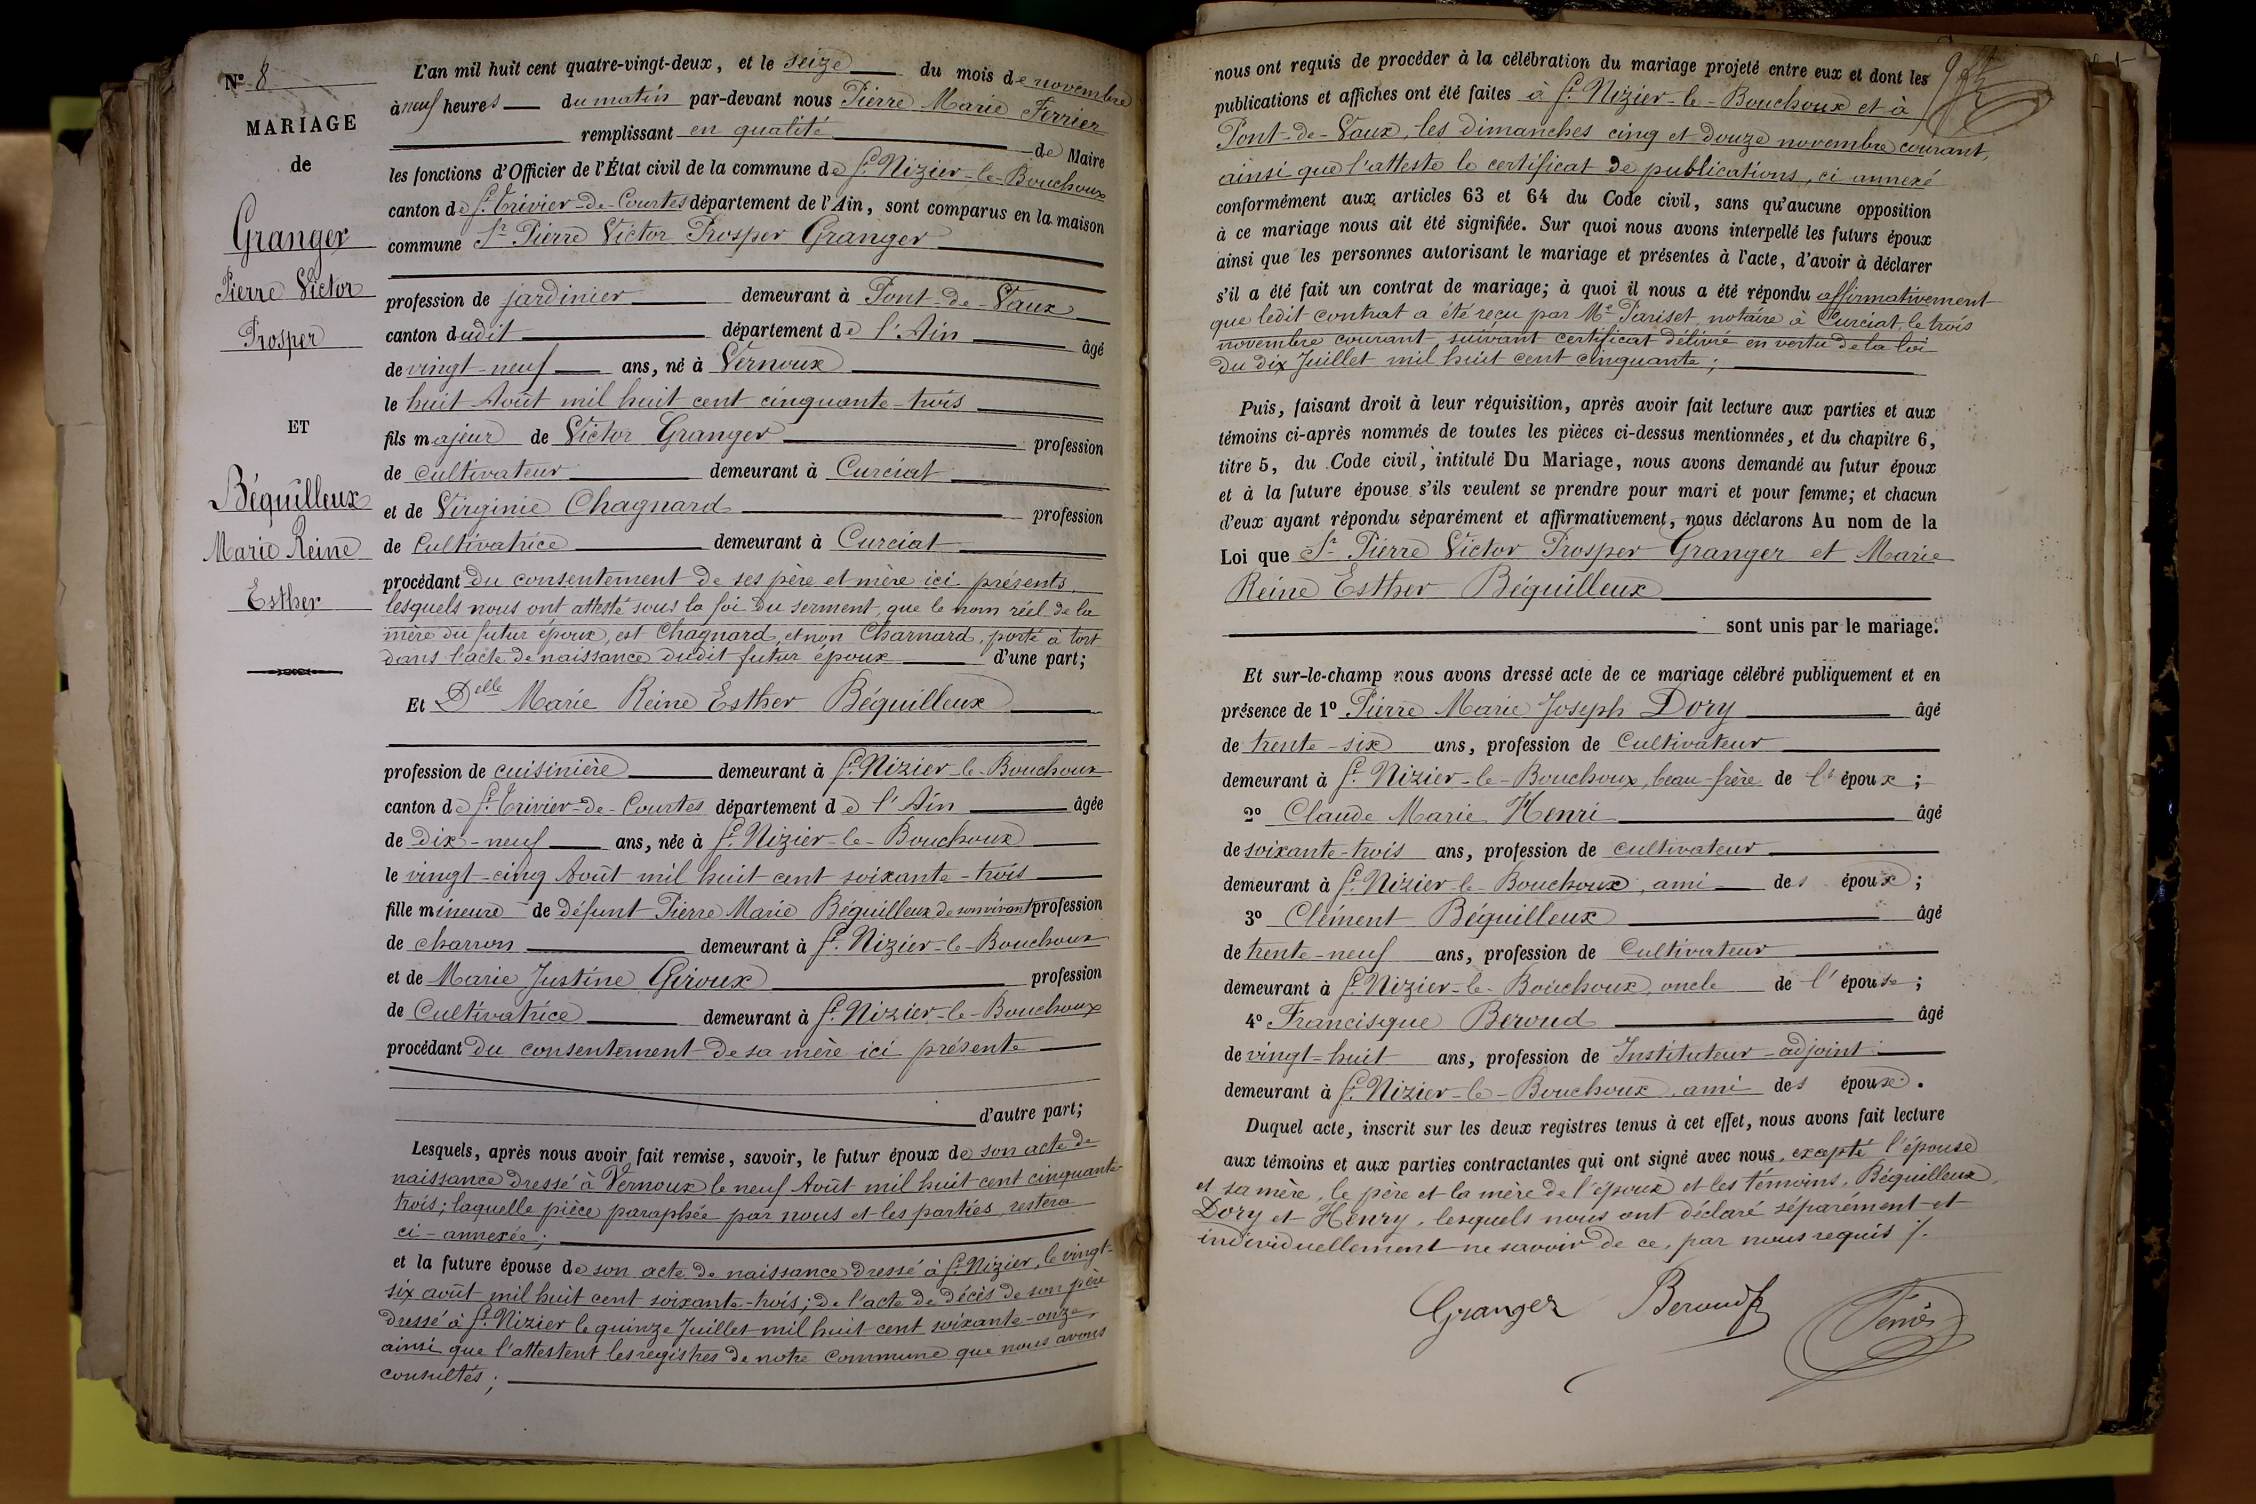 N° 8
MARIAGE
de
Granger
Pierre Victor
Prosper
ET
Béguilleux
Marie Reine
Esther
L'an mil huit cent quatre-vingt-deux, et le seize du mois de novembre
à neuf heures du matin par-devant nous Pierre Marie Ferrier
remplissant en qualité de Maire
les fonctions d'Officier de l'État civil de la commune de St Nizier-le-Bouchoux
canton de St Trivier-de-Courtes département de l'Ain, sont comparus en la maison
commune Sr Pierre Victor Prosper Granger
profession de jardinier demeurant à Pont-de-Vaux
canton dudit département de l'Ain âgé
de vingt-neuf ans, né à Vernoux
le huit Août mil huit cent cinquante-trois
fils majeur de Victor Granger profession
de cultivateur demeurant à Curciat
et de Virginie Chagnard profession
de Cultivatrice demeurant à Curciat
procédant du consentement de ses père et mère ici présents,
lesquels nous ont attesté sous la foi du serment, que le nom réel de la
mère du futur époux, est Chagnard, et non Charnard, porté à tort
dans l'acte de naissance dudit futur époux d'une part;
Et Delle Marie Reine Esther Béguilleux
profession de cuisinière demeurant à St Nizier-le-Bouchoux
canton de St Trivier-de-Courtes département de l'Ain âgée
de dix-neuf ans, née à St Nizier-le-Bouchoux
le vingt-cinq Août mil huit cent soixante-trois
fille mineure de défunt Pierre Marie Béguilleux de son vivant profession
de charron demeurant à St Nizier-le-Bouchoux
et de Marie Justine Giroux profession
de Cultivatrice demeurant à St Nizier-le-Bouchoux
procédant du consentement de sa mère ici présente
d'autre part;
Lesquels, après nous avoir fait remise, savoir, le futur époux de son acte de
naissance dressé à Vernoux le neuf Août mil huit cent cinquante-
trois; laquelle pièce paraphée par nous et les parties, restera
ci-annexée;
et la future épouse de son acte de naissance dressé à St Nizier, le vingt-
six août mil huit cent soixante-trois; de l'acte de décès de son père
dressé à St Nizier le quinze Juillet mil huit cent soixante-onze,
ainsi que l'attestent les registres de notre commune que nous avons
consultés;
nous ont requis de procéder à la célébration du mariage projeté entre eux et dont les
publications et affiches ont été faites à St Nizier-le-Bouchoux et à
Pont-de-Vaux, les dimanches cinq et douze novembre courant,
ainsi que l'atteste le certificat de publications, ci annexé
conformément aux articles 63 et 64 du Code civil, sans qu'aucune opposition
à ce mariage nous ait été signifiée. Sur quoi nous avons interpellé les futurs époux
ainsi que les personnes autorisant le mariage et présentes à l'acte, d'avoir à déclarer
s'il a été fait un contrat de mariage; à quoi il nous a été répondu affirmativement
que ledit contrat a été reçu par Me Pariset, notaire à Curciat, le trois
novembre courant, suivant certificat délivré en vertu de la loi
du dix Juillet mil huit cent cinquante;
Puis, faisant droit à leur réquisition, après avoir fait lecture aux parties et aux
témoins ci-après nommés de toutes les pièces ci-dessus mentionnées, et du chapitre 6,
titre 5, du Code civil, intitulé Du Mariage, nous avons demandé au futur époux
et à la future épouse s'ils veulent se prendre pour mari et pour femme; et chacun
d'eux ayant répondu séparément et affirmativement, nous déclarons Au nom de la
Loi que Sr Pierre Victor Prosper Granger et Marie
Reine Esther Béguilleux
sont unis par le mariage.
Et sur-le-champ nous avons dressé acte de ce mariage célébré publiquement et en
présence de 1° Pierre Marie Joseph Dory âgé
de trente-six ans, profession de Cultivateur
demeurant à St Nizier-le-Bouchoux, beau-frère de l'époux;
2° Claude Marie Henri âgé
de soixante-trois ans, profession de cultivateur
demeurant à St Nizier-le-Bouchoux, ami des époux;
3° Clément Béguilleux âgé
de trente-neuf ans, profession de Cultivateur
demeurant à St Nizier-le-Bouchoux, oncle de l'épouse;
4° Francisque Beroud âgé
de vingt-huit ans, profession de Instituteur-adjoint
demeurant à St Nizier-le-Bouchoux, ami des époux.
Duquel acte, inscrit sur les deux registres tenus à cet effet, nous avons fait lecture
aux témoins et aux parties contractantes qui ont signé avec nous, excepté l'épouse
et sa mère, le père et la mère de l'époux et les témoins, Béguilleux,
Dory et Henry, lesquels nous ont déclaré séparément et
individuellement ne savoir de ce, par nous requis ./.
Granger Beroud